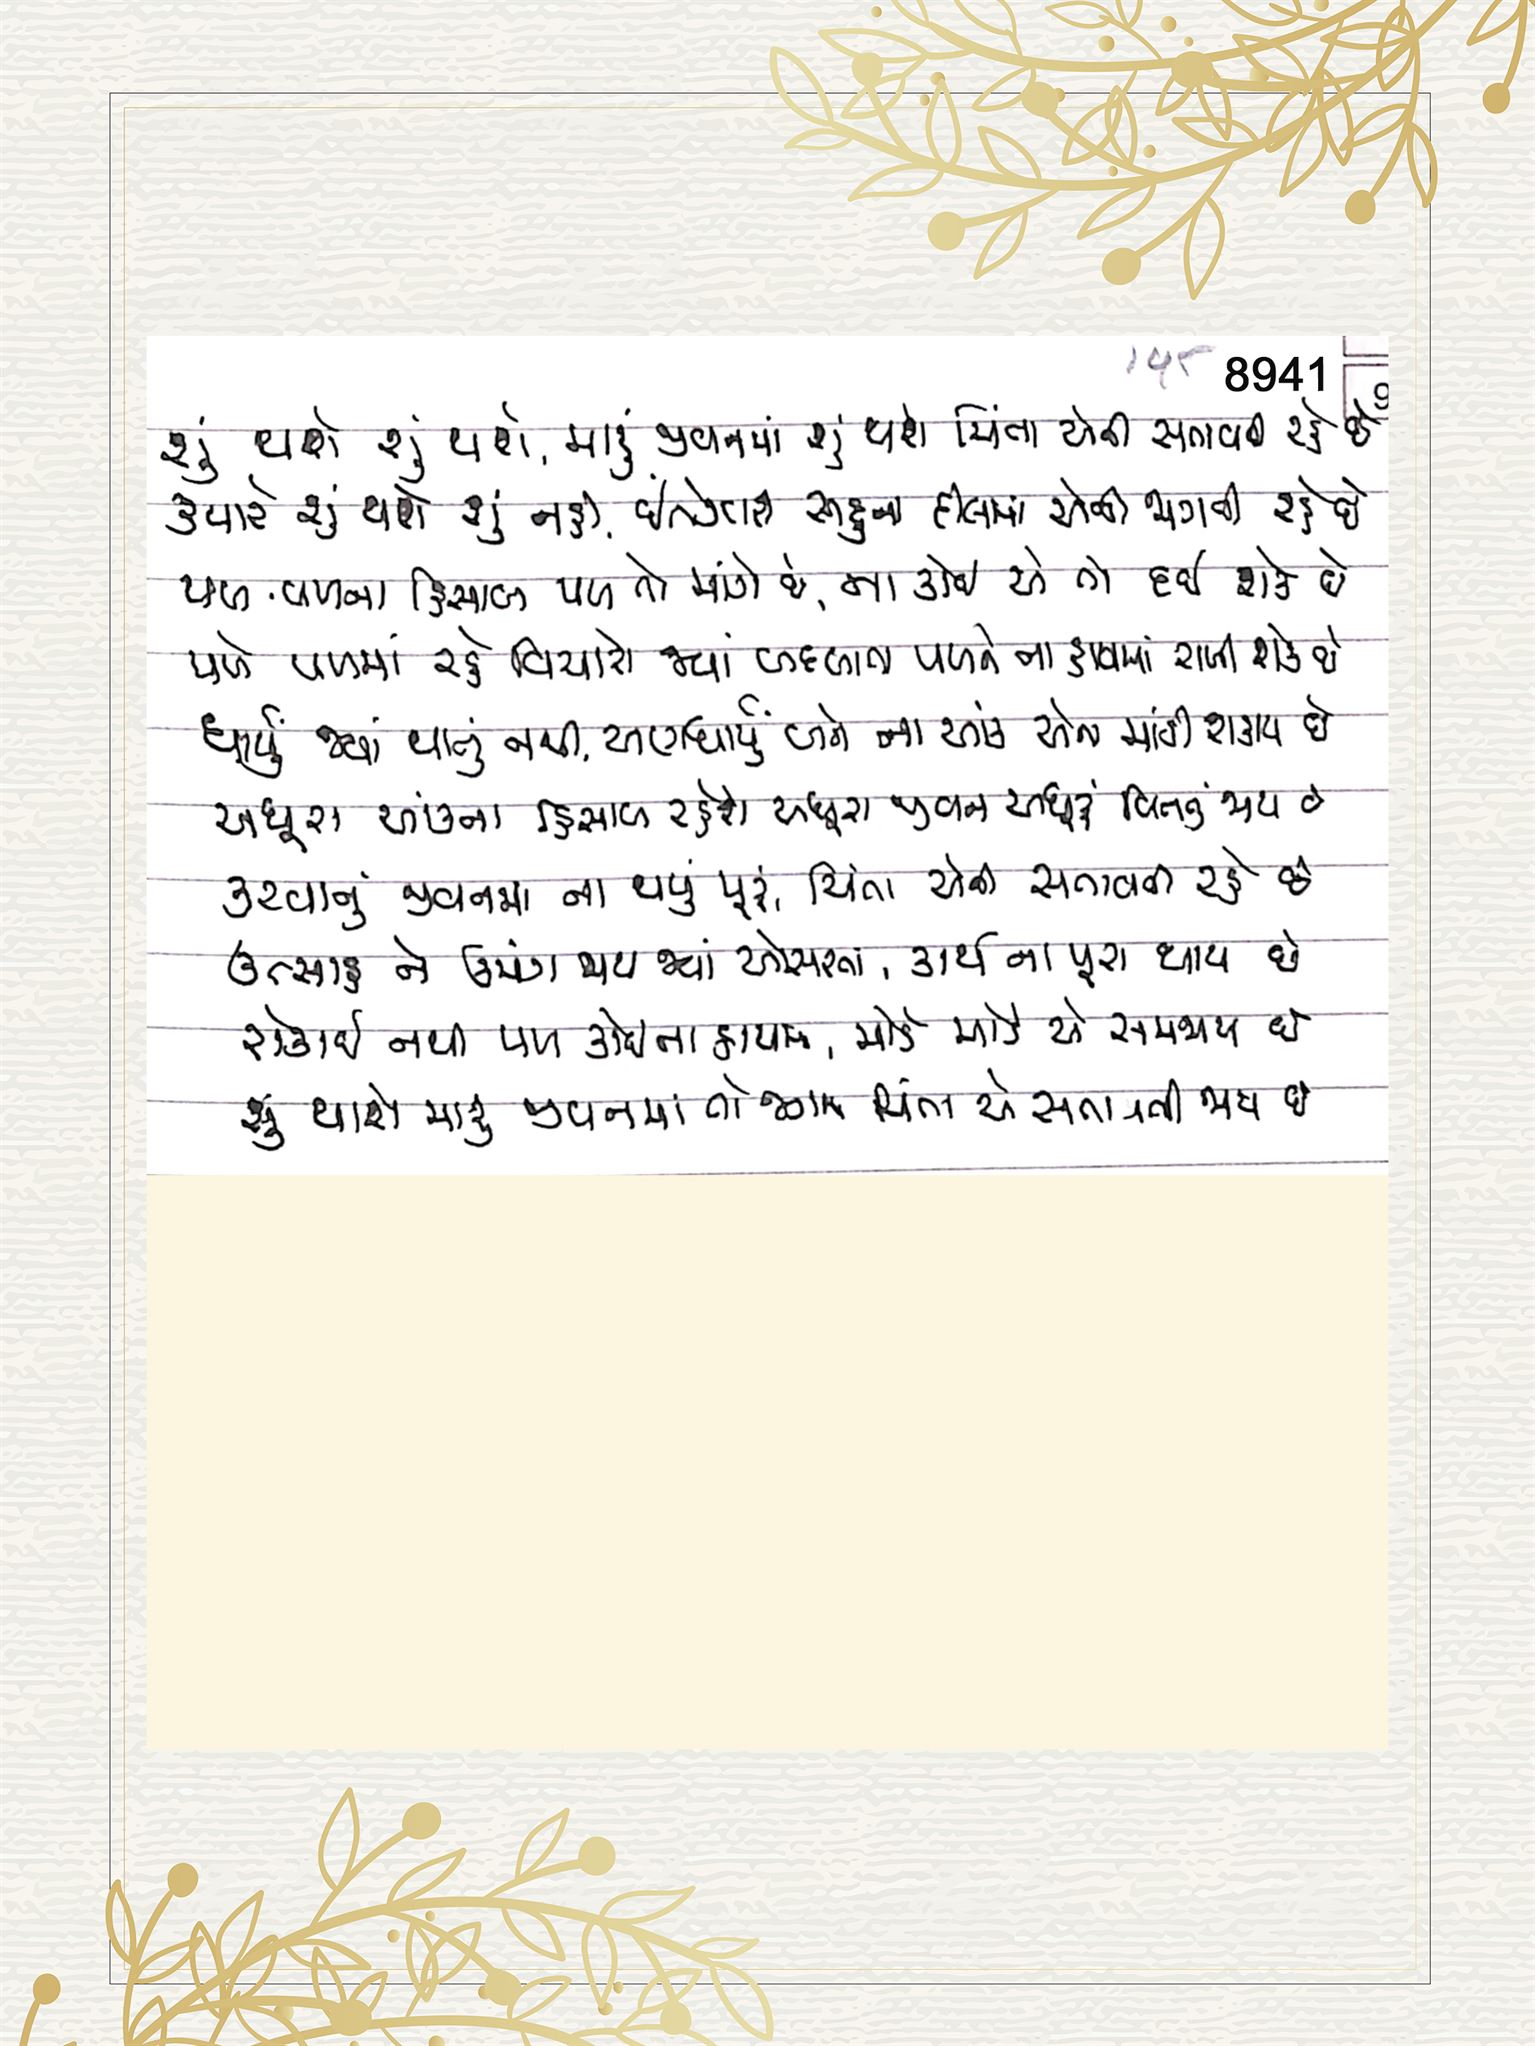 8941
શું થાશે શું થાશે, મારું જીવનમાં શું થાશે ચિંતા એવી સતાવતી રહે છે
ક્યારે શું થાશે શું નહીં, સહુના દીલમાં એવી જાગતી રહે છે
પળ પળના હિસાબ પળ તો માંગે છે, ના કોઈ એ તો દઈ શકે છે
પળે પળમાં રહે વિચારો જ્યાં બદલાતા પળને ના હાથમાં રાખી શકે છે
ધાર્યું જ્યાં થાતું નથી, અણધાર્યું બને ના આંક એના માંડી શકાય છે
અધૂરા આંકના હિસાબ રહેશે અધૂરા જીવન અધૂરું વિતતું જાય છે
કરવાનું જીવનમાં ના થયું પૂરું, ચિંતા એવી સતાવતી રહે છે
ઉત્સાહ ને ઉમંગ જાય જ્યાં ઓસરતા, કાર્ય ના પૂરા થાય છે
રોકાઈ નથી પળ કોઈના હાથમાં, મોડે મોડે એ સમજાય છે
શું થાશે મારું જીવનમાં તો ચિંતા એ સતાવતી જાય છે